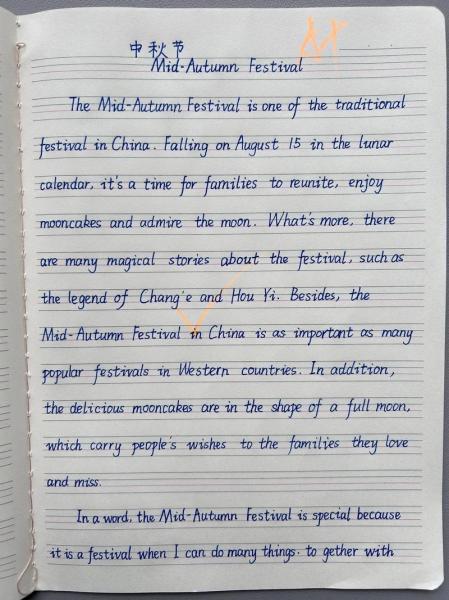 中秋节
Mid-Autumn Festival
The Mid-Autumn Festival is one of the traditional
festival in China. Falling on August 15 in the lunar
calendar, it's a time for families to reunite, enjoy
mooncakes and admire the moon. What's more, there
are many magical stories about the festival, such as
the legend of Chang'e and Hou Yi. Besides, the
Mid-Autumn Festival in China is as important as many
popular festivals in Western countries. In addition,
the delicious mooncakes are in the shape of a full moon,
which carry people's wishes to the families they love
and miss.
In a word, the Mid-Autumn Festival is special because
it is a festival when I can do many things. to gether with